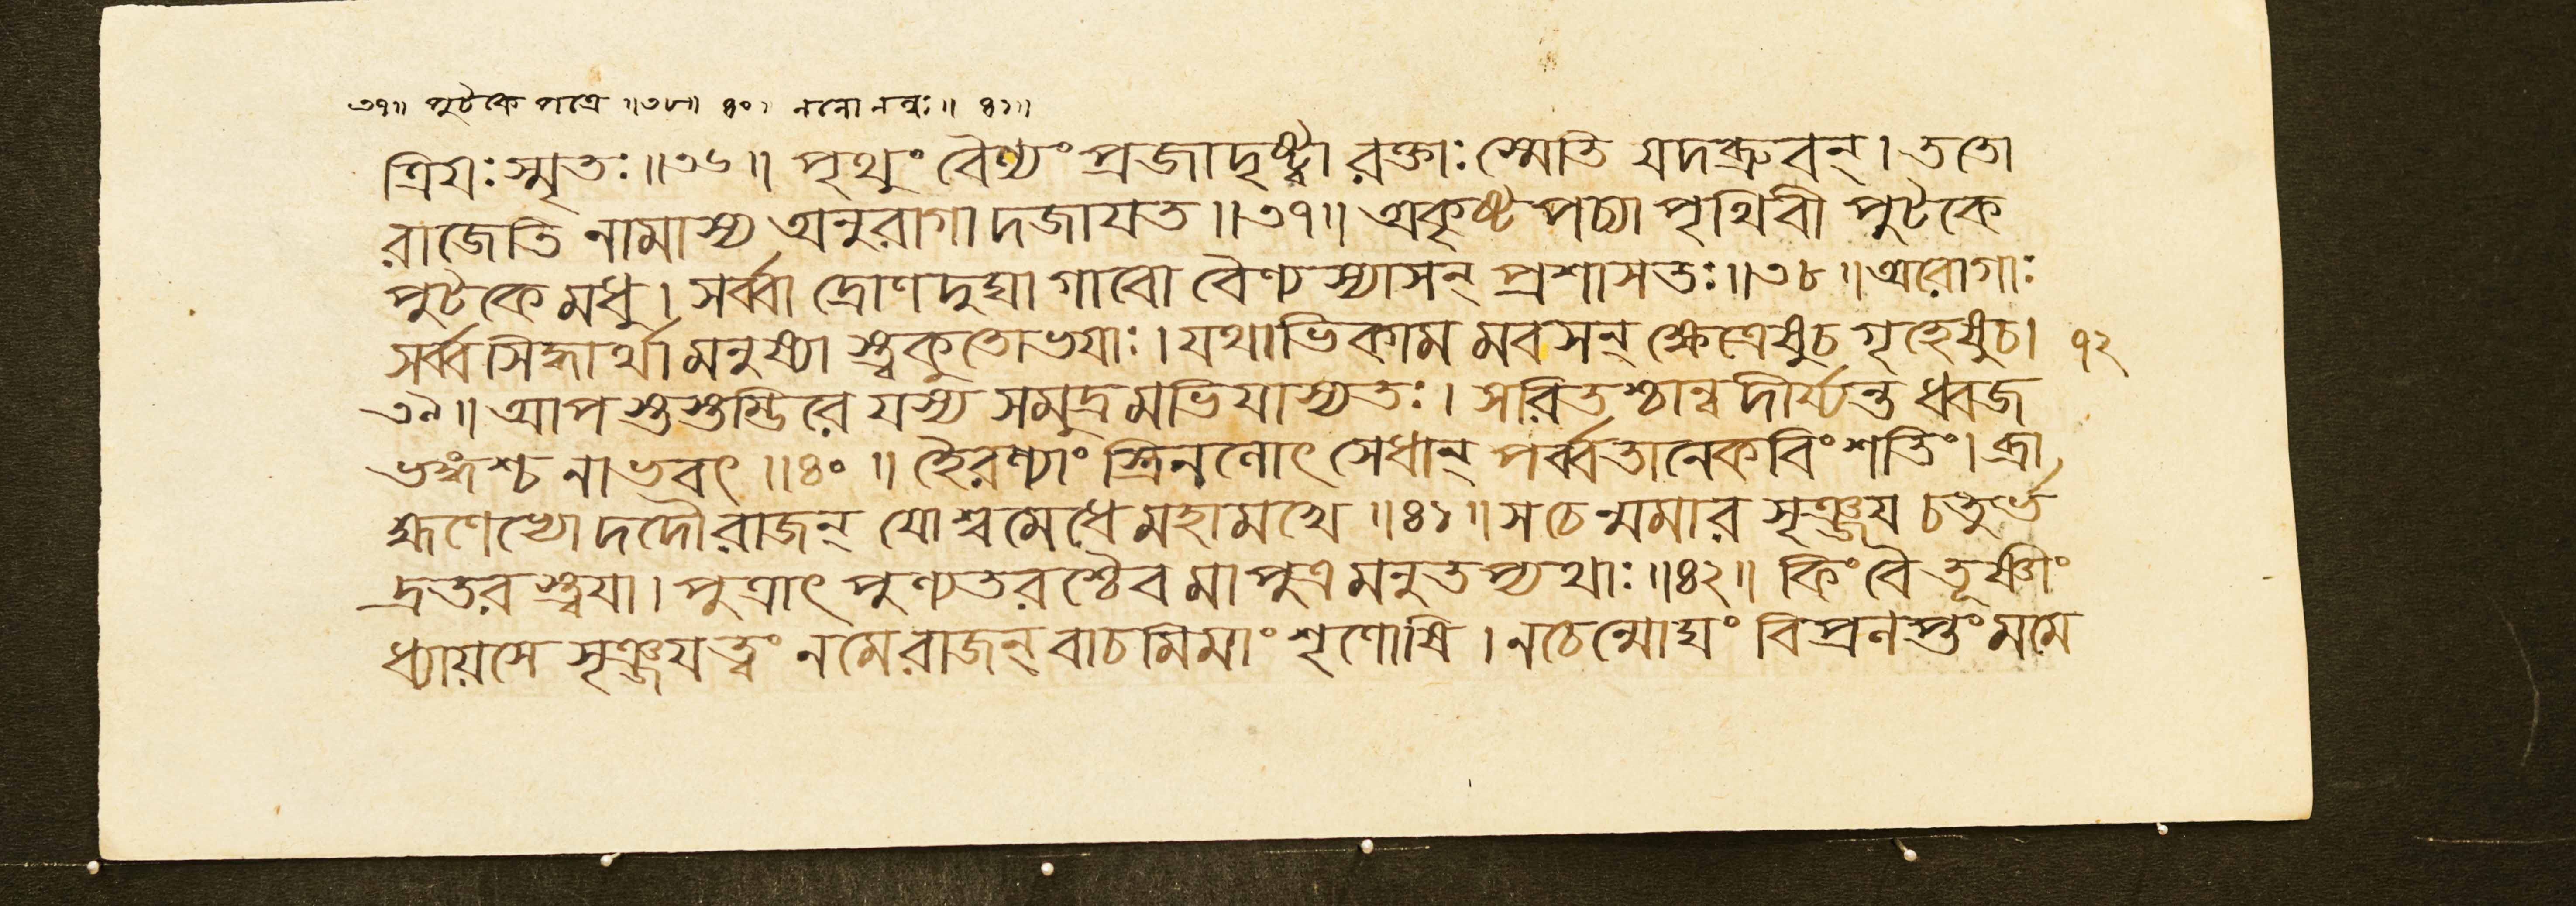 ৩৭॥ পুটকে পত্রে ॥৩৮॥ ৪০॥ নল্বো নল্বঃ॥ ৪১॥
ত্রিযঃ স্মৃতঃ॥৩৬॥ পৃথুং বৈণ্যং প্রজাদৃষ্ট্বা রক্তাঃ স্মেতি যদব্রুবন্। ততো
রাজেতি নামাস্য অনুরাগাদজাযত॥৩৭॥ অকৃষ্টপচ্যা পৃথিবী পুটকে
পুটকে মধু। সর্ব্বা দ্রোণদুঘা গাবো বৈণ্যস্যাসন্ প্রশাসতঃ॥৩৮॥অরোগাঃ
সর্ব্বসিদ্ধার্থা মনুষ্যা স্ত্বকুতোভযাঃ। যথাভিকামমবসন্ ক্ষেত্রেষুচ গৃহেষুচ। ৭২
৩৯॥ আপ স্তুস্তুম্ভিরে যস্য সমুদ্রমভিযাস্যতঃ। সরিতশ্চান্বদীর্য্যন্ত ধ্বজ
ভঙ্গশ্চ নাভবৎ॥৪০॥ হৈরণ্যাং স্ত্রিনলোৎসেধান্ পর্ব্বতানেকবিংশতিং। ব্রা
হ্মণেভ্যো দদৌ রাজন্ যোশ্বমেধে মহামখে॥৪১॥ স চেন্মমার সৃঞ্জয চতুর্ভ
দ্রতর স্ত্বযা। পুত্রাৎ পুণ্যতরশ্চৈব মা পুত্রমনুতপ্যথাঃ॥৪২॥ কিং বৈ তূষ্ণীং
ধ্যায়সে সৃঞ্জযত্বং নমে রাজন্ বাচমিমাং শৃণোষি। নচেন্মোঘং বিপ্রলপ্তং মমে